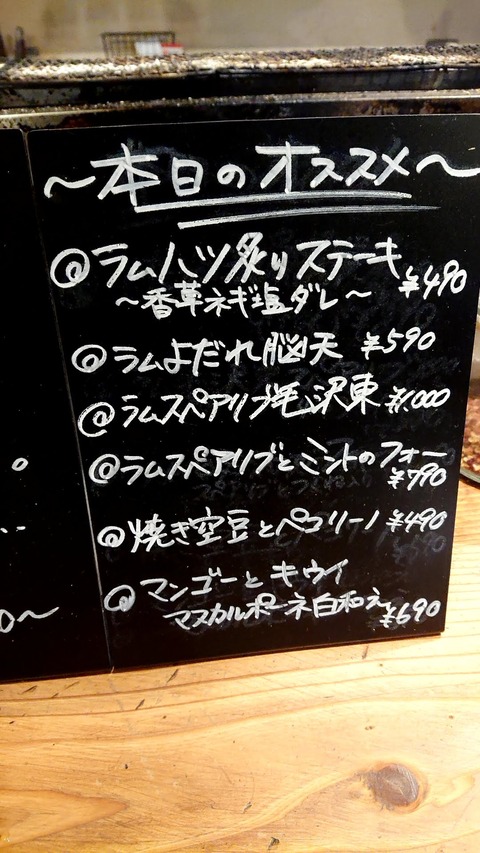 〜本日のオススメ〜
@ラムハツ炙りステーキ ¥490
〜香草ネギ塩ダレ〜
@ラムよだれ脳天 ¥590
@ラムスペアリブ毛沢東 ¥1000
@ラムスペアリブとミントのフォー
¥790
@焼き空豆とペコリーノ ¥490
@マンゴーとキウイ
マスカルポーネ白和え ¥690